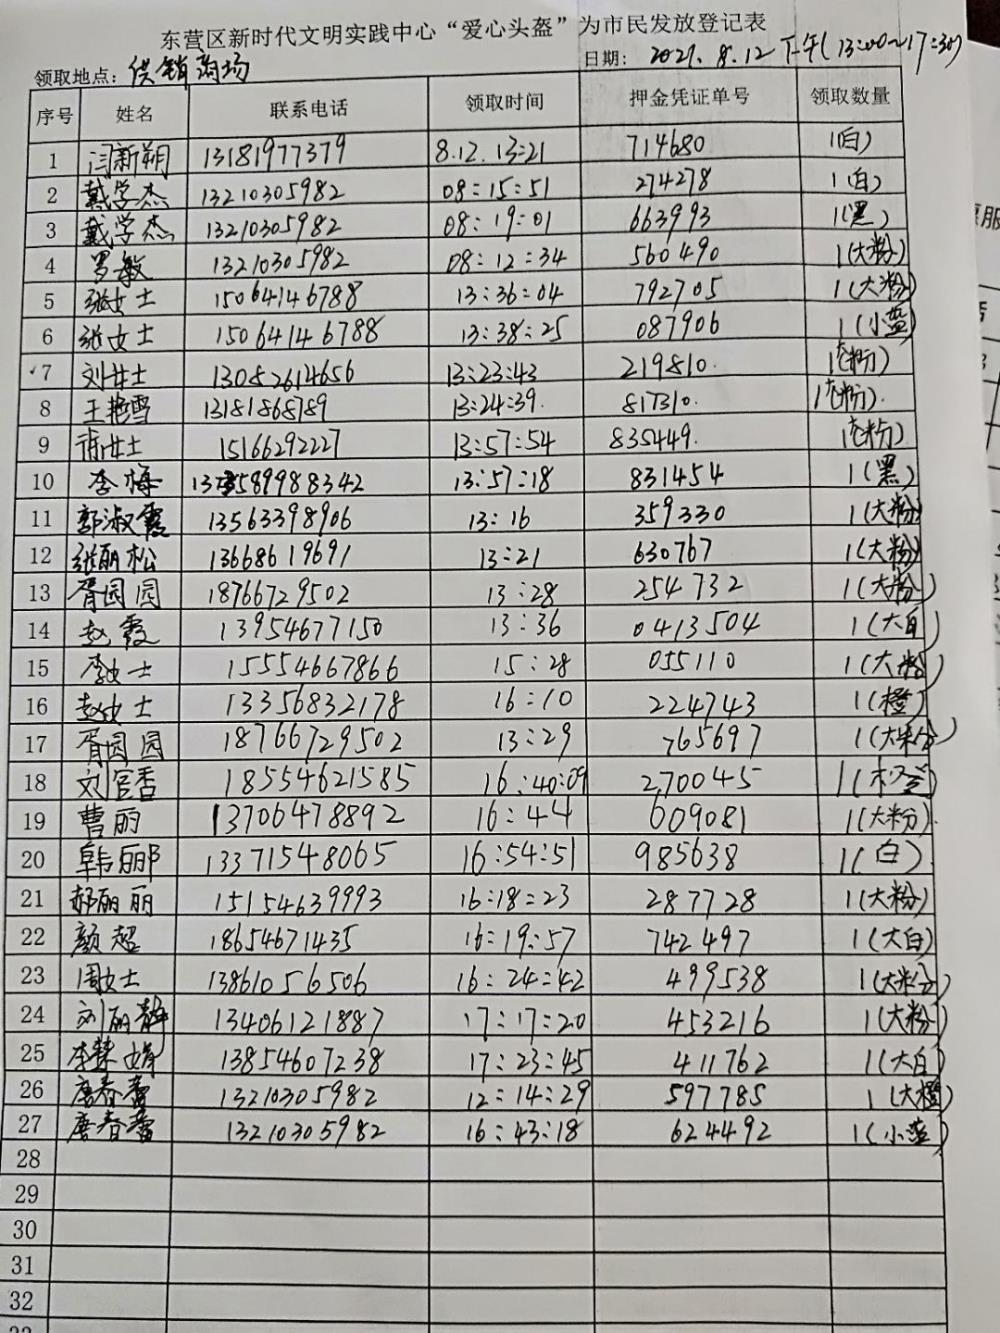 东营区新时代文明实践中心“爱心头盔”为市民发放登记表
领取地点：供销商场 日期：2021.8.12 下午(13:00~17:30)
序号 姓名 联系电话 领取时间 押金凭证单号 领取数量
1 闫新朔 13181977379 8.12.13:21 714680 1(白)
2 戴学杰 13210305982 08:15:51 274278 1(白)
3 戴学杰 13210305982 08:19:01 663993 1(黑)
4 罗敏 13210305982 08:12:34 560490 1(大粉)
5 张女士 15064146788 13:36:04 792705 1(大粉)
6 张女士 15064146788 13:38:25 087906 1(小蓝)
7 刘女士 13082614656 13:23:43 219810. 1(大粉)
8 王艳雪 13181868789 13:24:39. 817310. 1(大粉).
9 女士 15166292227 13:57:54 835449. 1(大粉)
10 李梅 13589988342 13:57:18 831454 1(黑)
11 郭淑霞 13563398906 13:16 359330 1(大粉)
12 张丽松 13668619691 13:21 630767 1(大粉)
13 胥园园 18766729502 13:28 254732 1(大粉)
14 赵霞 13954677150 13:36 0413504 1(大白)
15 李女士 15554667866 15:28 055110 1(大粉)
16 赵女士 13356832178 16:10 224743 1(橙)
17 胥园园 18766729502 13:29 765697 1(大粉)
18 刘官香 18554621585 16:40:09 2700045 1(橙)
19 曹丽 13706478892 16:44 609081 1(大粉).
20 韩丽 13371548065 16:54:51 985638 1(白).
21 郝丽丽 15154639993 16:18:23 287728 1(大粉)
22 颜超 18654671435 16:19:57 742497 1(大白)
23 周女士 13861056506 16:24:42 499538 1(大粉)
24 刘丽静 13406121887 17:17:20 453216 1(大粉)
25 李娟 13854607238 17:23:45 411762 1(大白)
26 唐春蕾 13210305982 12:14:29 597785 1(大橙)
27 唐春蕾 13210305982 16:43:18 624492 1(小蓝)
28
29
30
31
32